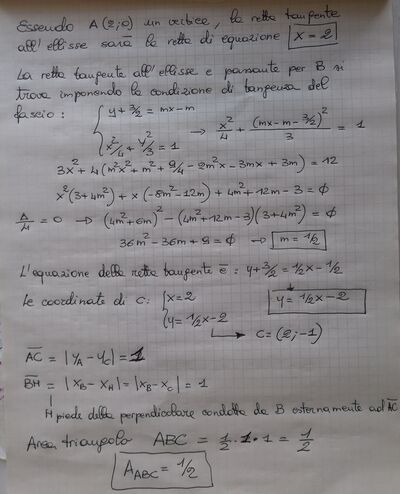 Essendo A(2;0) un vertice, la retta tangente
all'ellisse sarà la retta di equazione x = 2
La retta tangente all'ellisse e passante per B si
trova imponendo la condizione di tangenza del
fascio: { y + 3/2 = mx - m
x²/4 + y²/3 = 1 → x²/4 + (mx - m - 3/2)²/3 = 1
3x² + 4(m²x² + m² + 9/4 - 2m²x - 3mx + 3m) = 12
x²(3+4m²) + x(-8m² - 12m) + 4m² + 12m - 3 = 0
Δ/4 = 0 → (4m² + 6m)² - (4m² + 12m - 3)(3 + 4m²) = 0
36m² - 36m + 9 = 0 → m = 1/2
L'equazione della retta tangente è: y + 3/2 = 1/2x - 1/2
Le coordinate di C: { x = 2 y = 1/2x - 2
y = 1/2x - 2
C = (2; -1)
AC = |yA - yC| = 1
BH = |xB - xH| = |xB - xC| = 1
H piede della perpendicolare condotta da B esternamente ad AC
Area triangolo ABC = 1/2 · 1 · 1 = 1/2
A ABC = 1/2